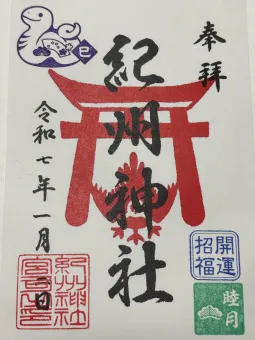 奉拝
紀州神社
令和七年一月 日
巳
開運
招福
睦月
紀州神社